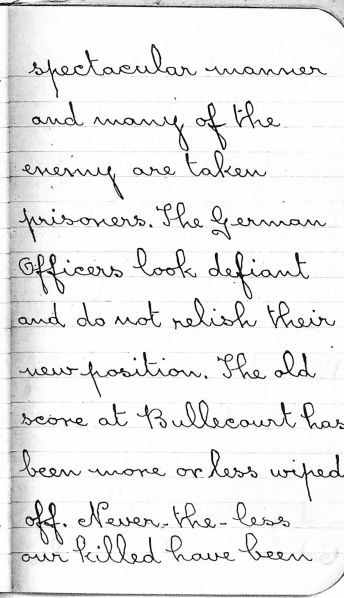 spectacular manner
and many of the
enemy are taken
prisoners. The German
Officers look defiant
and do not relish their
new position. The old
score at Bullecourt has
been more or less wiped
off. Never-the-less
our killed have been